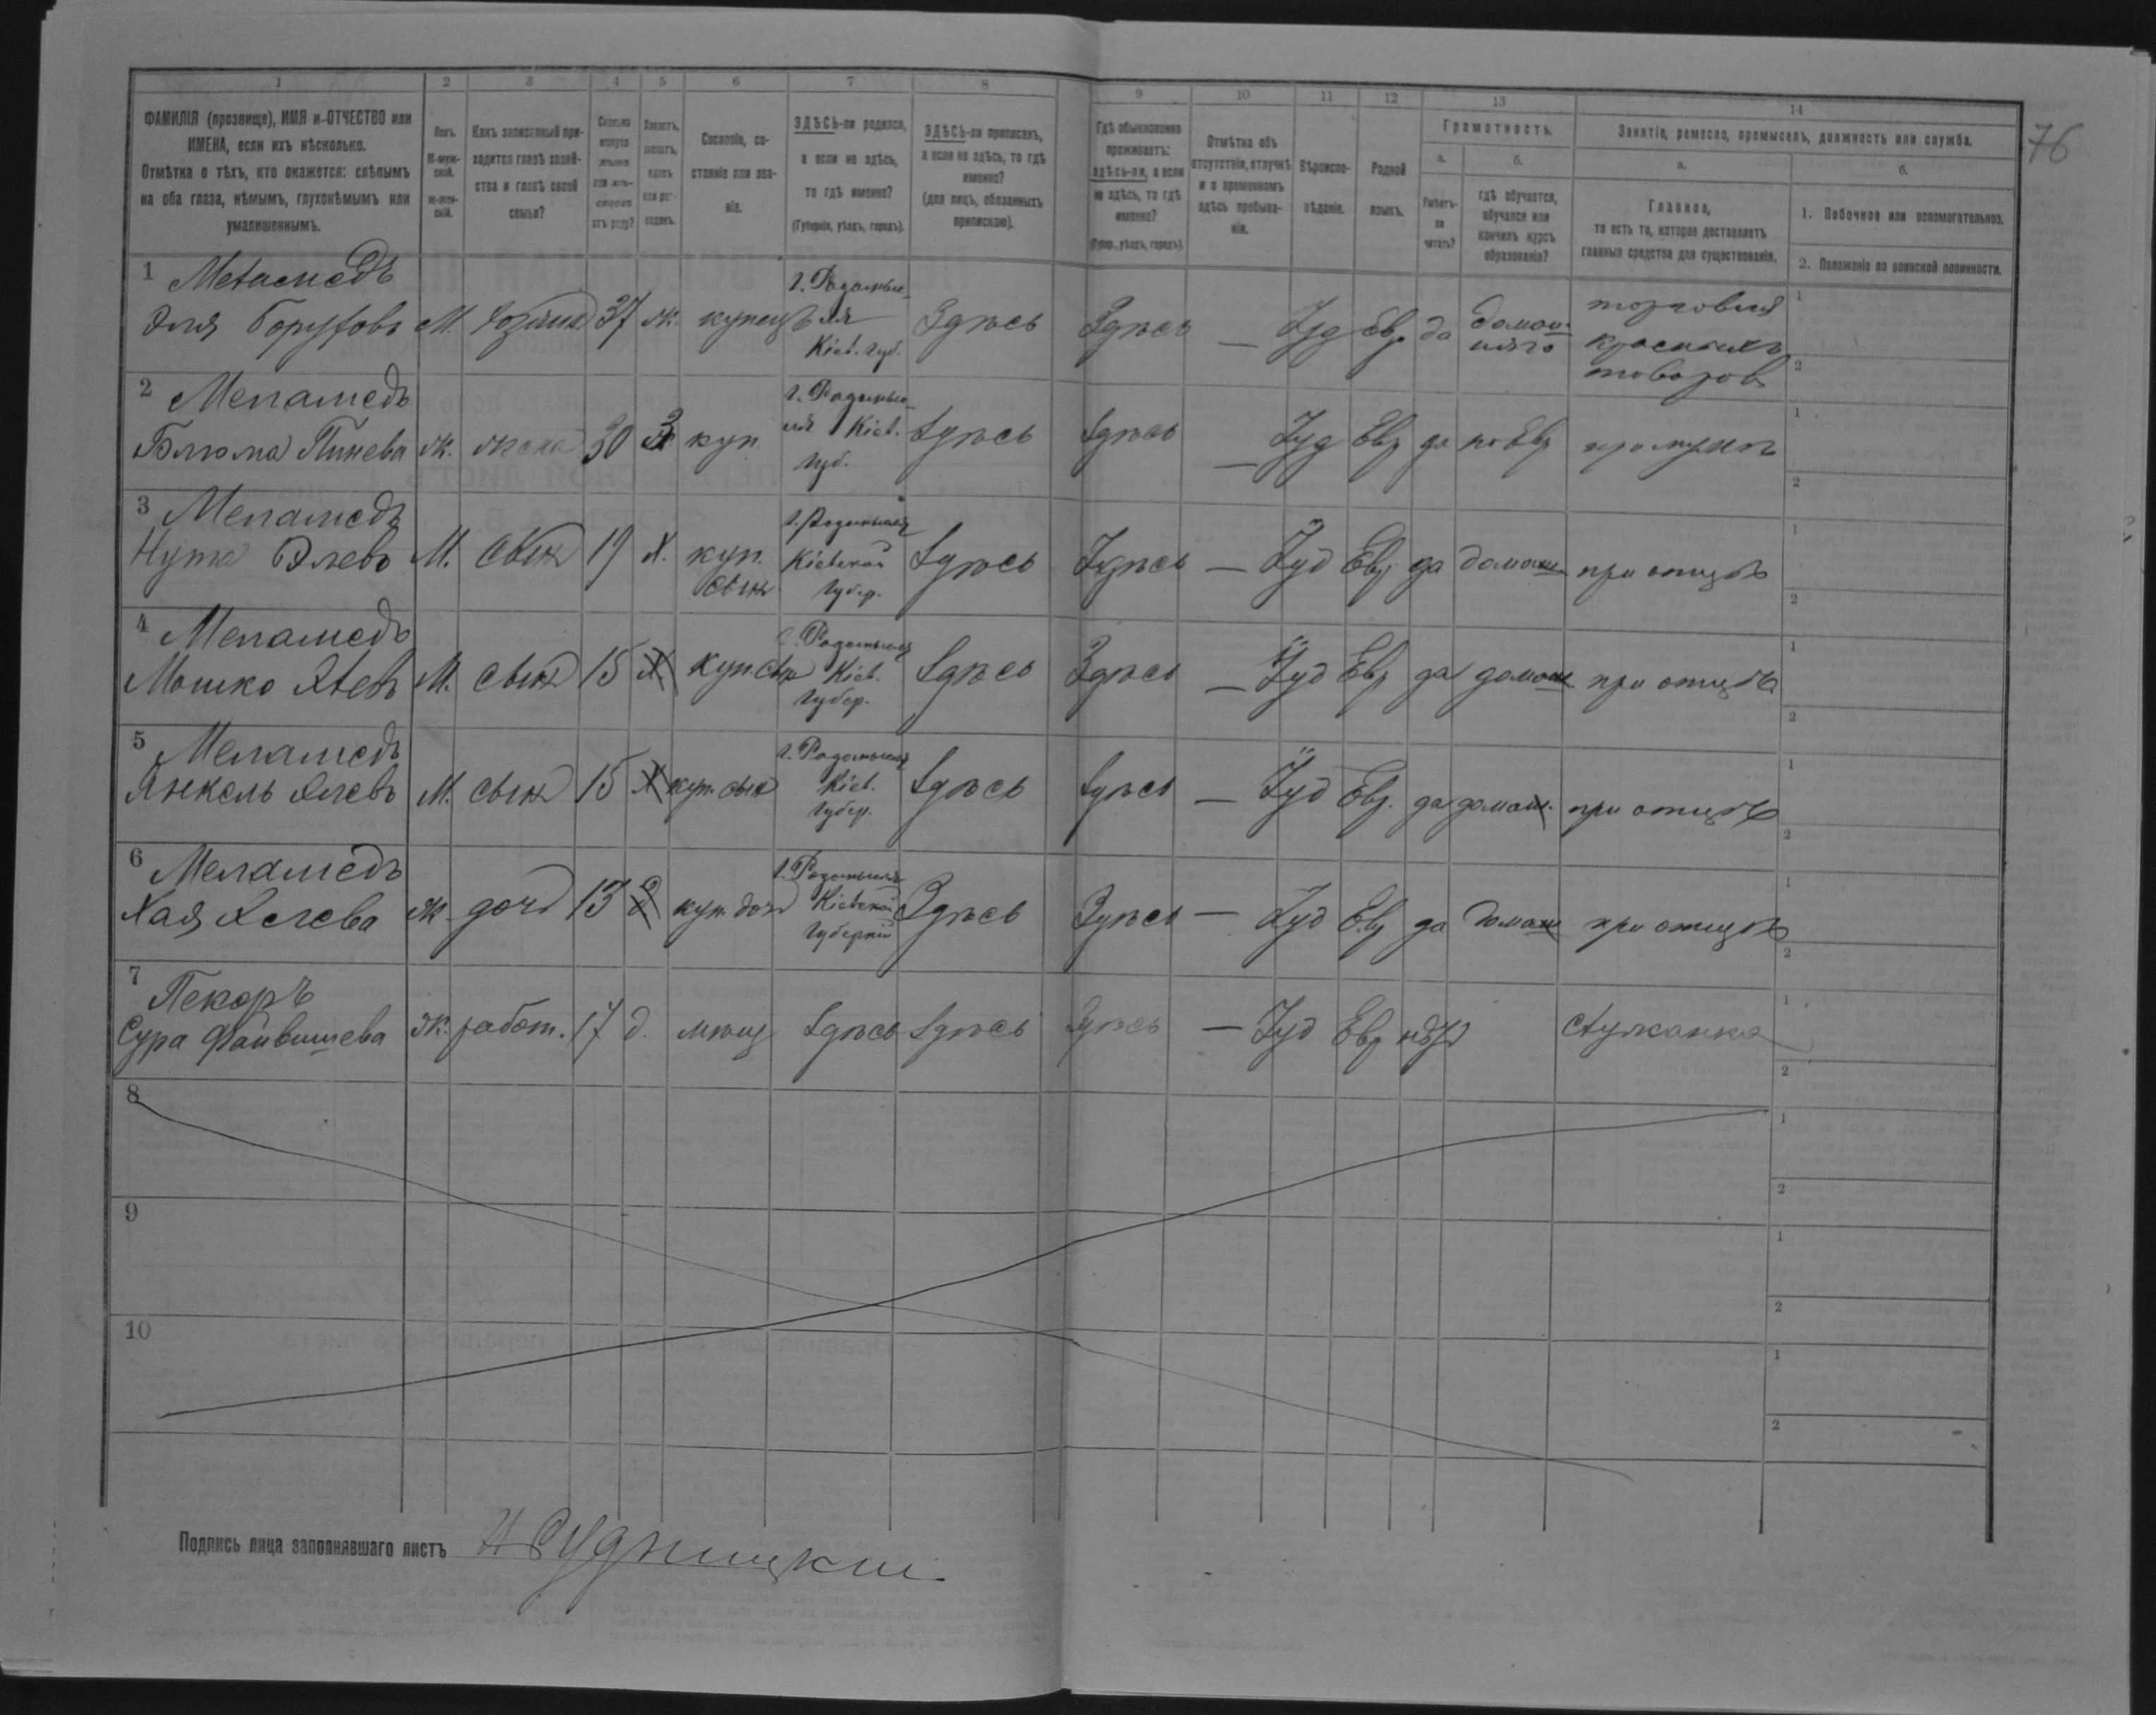 1 2 3 4 5 6 7 8 9 10 11 12 13 14
76
ФАМИЛІЯ (прозвище), ИМЯ и ОТЧЕСТВО или
ИМЕНА, если ихъ нѣсколько.
Отмѣтка о тѣхъ, кто окажется: слѣпымъ
на оба глаза, нѣмымъ, глухонѣмымъ или
умалишеннымъ.
Полъ.
М-муж-
ской.
Ж-жен-
скій.
Какъ записанный при-
ходится главѣ хозяй-
ства и главѣ своей
семьи?
Сколько
минуло
лѣтъ
или мѣ-
сяцевъ
отъ роду?
Холостъ,
женатъ,
вдовъ
или раз-
веденъ.
Сословіе, со-
стояніе или зва-
ніе.
ЗДѢСЬ-ли родился,
а если не здѣсь,
то гдѣ именно?
(Губернія, уѣздъ, городъ).
ЗДѢСЬ-ли приписанъ,
а если не здѣсь, то гдѣ
именно?
(для лицъ, обязанныхъ
припискою).
Гдѣ обыкновенно
проживаетъ:
здѣсь-ли, а если
не здѣсь, то гдѣ
именно?
(Губер., уѣздъ, городъ).
Отмѣтка объ
отсутствіи, отлучкѣ
и о временномъ
здѣсь пребыва-
ніи.
Вѣроиспо-
вѣданіе.
Родной
языкъ.
Грамотность.
а.
Умѣетъ-
ли
читать?
б.
гдѣ обучается,
обучался или
кончилъ курсъ
образованія?
Занятіе, ремесло, промыселъ, должность или служба.
а.
Главное,
то есть то, которое доставляетъ
главныя средства для существованія.
б.
1. Побочное или вспомогательное.
2. Положеніе по воинской повинности.
1 Меламедъ
Эля Боруховъ М. хозяинъ 37 ж. купецъ г. Радомысль Кіев. губ. Здѣсь Здѣсь — Іуд Евр да домашняго торговля красныхъ товаровъ
2 Меламедъ
Блюма Пинева ж. жена 30 З куп. г. Радомысль Кіев. губ. Здѣсь Здѣсь — Іуд Евр да по Евр при мужѣ
3 Меламедъ
Нута Элевъ М. сынъ 19 Х. куп. сынъ г. Радомысль Кіевской губер. Здѣсь Здѣсь — Іуд Евр да домаш при отцѣ
4 Меламедъ
Мошко Элевъ М. сынъ 15 Х куп. сын г. Радомысль Кіев. губер. Здѣсь Здѣсь — Іуд Евр да домаш при отцѣ
5 Меламедъ
Янкель Элевъ М. сынъ 15 Х куп. сын г. Радомысль Кіев. губер. Здѣсь Здѣсь — Іуд Евр. да домаш. при отцѣ
6 Меламедъ
Хая Элева ж. дочь 13 д куп. дочь г. Радомысль Кіевской губерніи Здѣсь Здѣсь — Іуд Евр да домаш при отцѣ
7 Пекоръ
Сура Файвишева ж. работ. 17 д. мѣщ Здѣсь Здѣсь Здѣсь — Іуд Евр нѣтъ служанка
8
9
10
Подпись лица заполнявшаго листъ